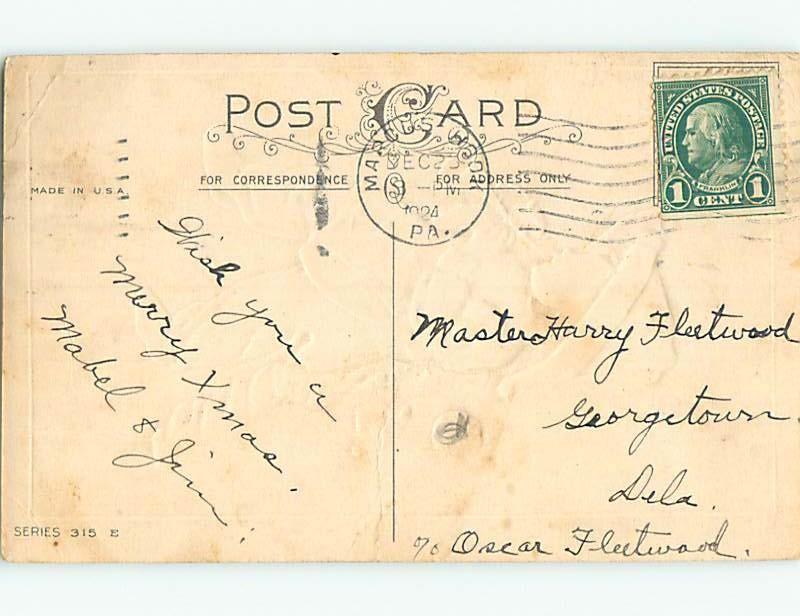 POST CARD
FOR CORRESPONDENCE
FOR ADDRESS ONLY
MADE IN U.S.A.
MARCUS HOOK
DEC 23
PM
1924
PA.
UNITED STATES POSTAGE
FRANKLIN
1 CENT 1
Wish you a
Merry Xmas.
Mabel & Jim.
Master Harry Fleetwood
Georgetown.
Dela.
℅ Oscar Fleetwood.
SERIES 315 E